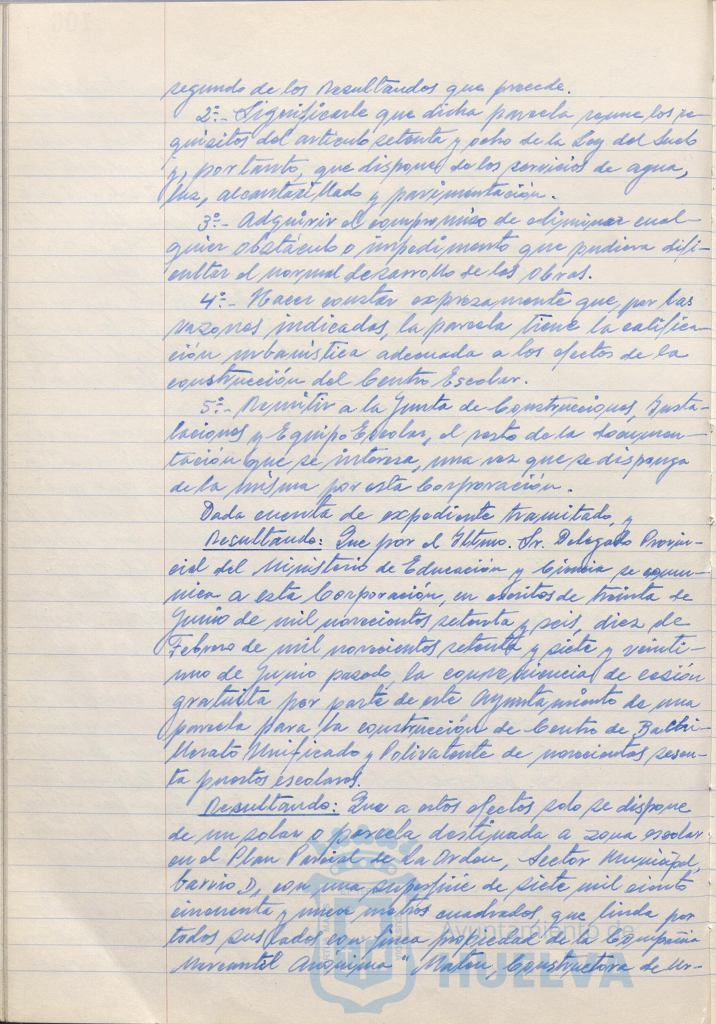 segundo de los Resultandos que precede.
2º.- Significarle que dicha parcela reune los re-
quisitos del artículo setenta y ocho de la Ley del Suelo
y, por tanto, que dispone de los servicios de agua,
luz, alcantarillado y pavimentación.
3º.- Adquirir el compromiso de eliminar cual-
quier obstáculo o impedimento que pudiera difi-
cultar el normal desarrollo de las obras.
4º.- Hacer constar expresamente que, por las
razones indicadas, la parcela tiene la califica-
ción urbanística adecuada a los efectos de la
construcción del Centro Escolar.
5º.- Remitir a la Junta de Construcciones, Insta-
laciones y Equipo Escolar, el resto de la documen-
tación que se interesa, una vez que se disponga
de la misma por esta Corporación.
Dada cuenta de expediente tramitado, y
Resultando: Que por el Iltmo. Sr. Delegado Provin-
cial del Ministerio de Educación y Ciencia se comu-
nica a esta Corporación, en escritos de treinta de
Junio de mil novecientos setenta y seis, diez de
Febrero de mil novecientos setenta y siete y veinti-
uno de Junio pasado, la conveniencia de cesión
gratuita por parte de este Ayuntamiento de una
parcela para la construcción de Centro de Bachi-
llerato Unificado y Polivalente de novecientos sesen-
ta puestos escolares.
Resultando: Que a estos efectos solo se dispone
de un solar o parcela destinada a zona escolar
en el Plan Parcial de La Orden, Sector Municipal,
barrio D, con una superficie de siete mil ciento
cincuenta y nueve metros cuadrados, que linda por
todos sus lados con finca propiedad de la Compañia
Mercantil Anónima "Maton, Constructora de Ur-
Ayuntamiento de
HUELVA